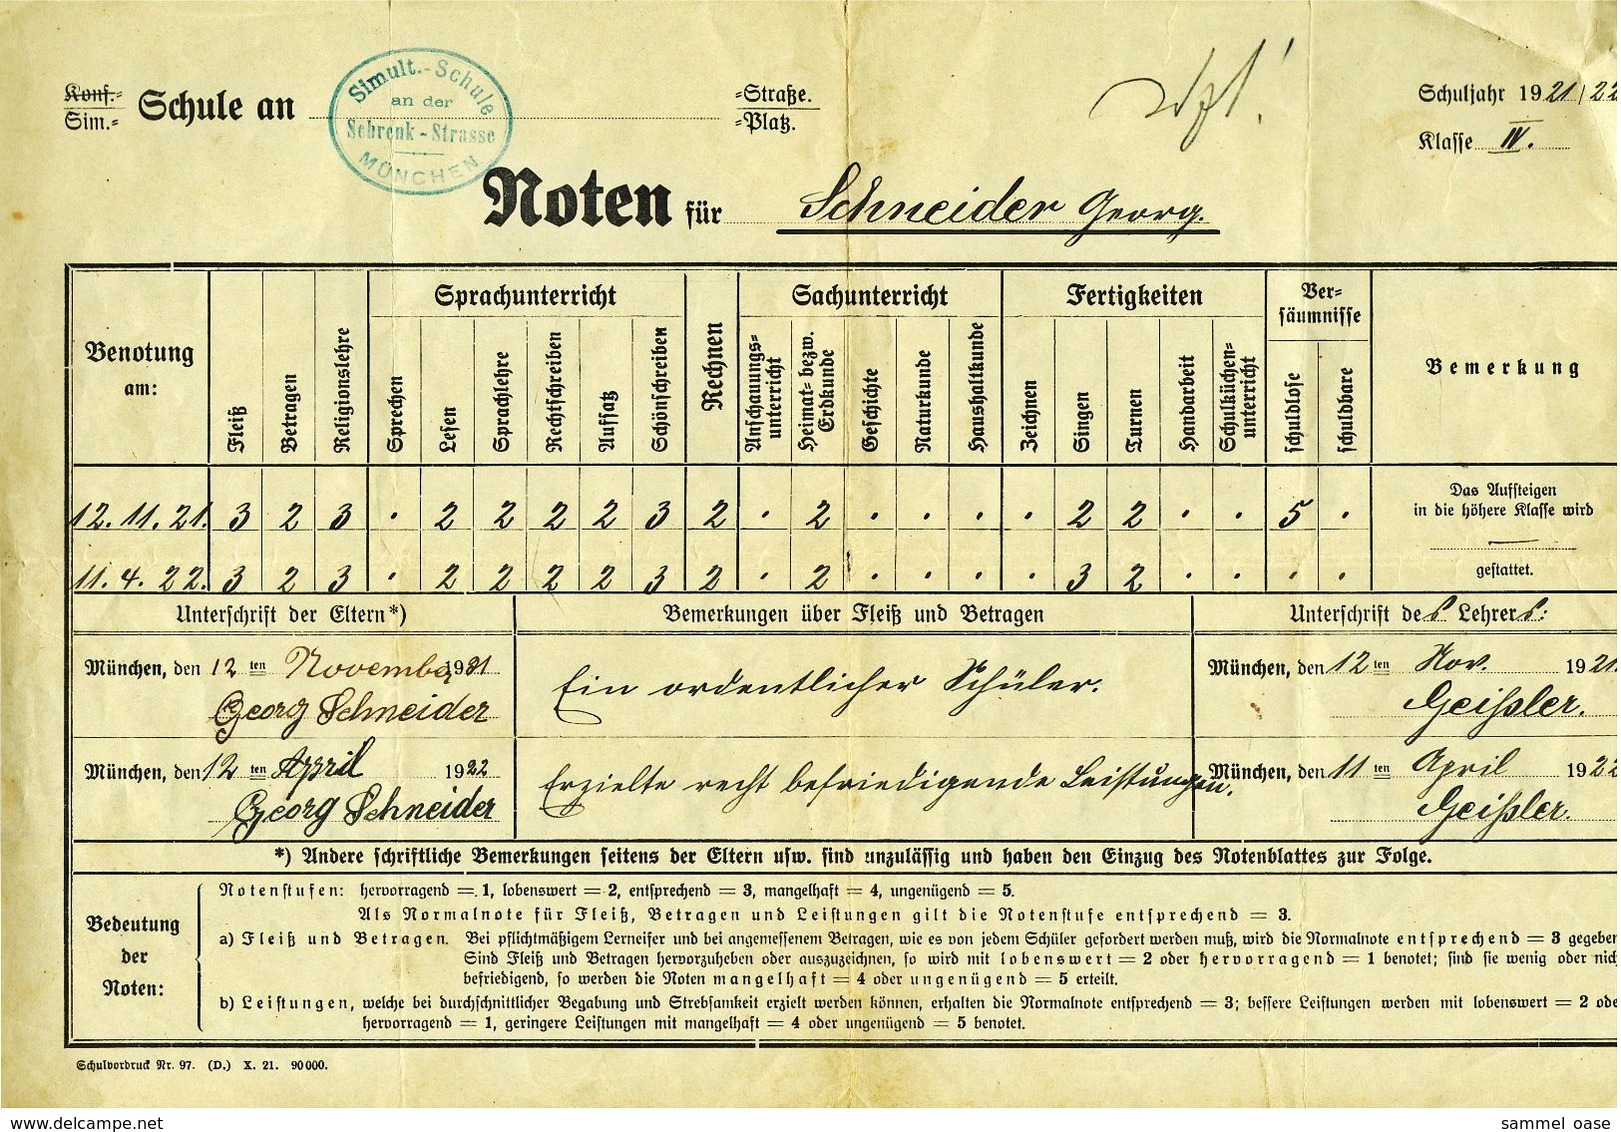 Konf.-
Sim.- Schule an
Simult.-Schule
an der
Schrenk-Strasse
MÜNCHEN.
-Straße.
-Platz.
Schuljahr 1921/22
Klasse IV.
Noten für Schneider Georg.
Benotung am:
Fleiß
Betragen
Religionslehre
Sprachunterricht
Sprechen
Lesen
Sprachlehre
Rechtschreiben
Aufsatz
Schönschreiben
Rechnen
Sachunterricht
Anschauungs-unterricht
Heimat- bezw. Erdkunde
Geschichte
Naturkunde
Haushaltkunde
Fertigkeiten
Zeichnen
Singen
Turnen
Handarbeit
Schulküchen-unterricht
Ver-säumnisse
schuldlose
schuldbare
Bemerkung
12. 11. 21. 3 2 3 · 2 2 2 2 3 2 · 2 · · · · 2 2 · · 5 ·
Das Aufsteigen
in die höhere Klasse wird
—
gestattet.
11. 4. 22. 3 2 3 · 2 2 2 2 3 2 · 2 · · · · 3 2 · · · ·
Unterschrift der Eltern*)
Bemerkungen über Fleiß und Betragen
Unterschrift des Lehrers:
München, den 12ten November 1921
Georg Schneider
Ein ordentlicher Schüler.
München, den 12ten Nov. 1921.
Geißler.
München, den 12ten April 1922
Georg Schneider
Erzielte recht befriedigende Leistungen.
München, den 11ten April 1922
Geißler.
*) Andere schriftliche Bemerkungen seitens der Eltern usw. sind unzulässig und haben den Einzug des Notenblattes zur Folge.
Bedeutung
der
Noten:
Notenstufen: hervorragend = 1, lobenswert = 2, entsprechend = 3, mangelhaft = 4, ungenügend = 5.
Als Normalnote für Fleiß, Betragen und Leistungen gilt die Notenstufe entsprechend = 3.
a) Fleiß und Betragen. Bei pflichtmäßigem Lerneifer und bei angemessenem Betragen, wie es von jedem Schüler gefordert werden muß, wird die Normalnote entsprechend = 3 gegeben
Sind Fleiß und Betragen hervorzuheben oder auszuzeichnen, so wird mit lobenswert = 2 oder hervorragend = 1 benotet; sind sie wenig oder nich
befriedigend, so werden die Noten mangelhaft = 4 oder ungenügend = 5 erteilt.
b) Leistungen, welche bei durchschnittlicher Begabung und Strebsamkeit erzielt werden können, erhalten die Normalnote entsprechend = 3; bessere Leistungen werden mit lobenswert = 2 ode
hervorragend = 1, geringere Leistungen mit mangelhaft = 4 oder ungenügend = 5 benotet.
Schulvordruck Nr. 97. (D.) X. 21. 90000.
www.delcampe.net
sammel_oase